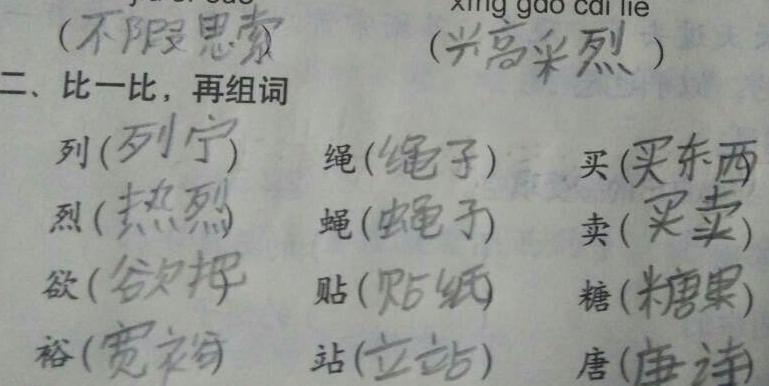 xing gao cai lie
(不暇思索) (兴高采烈)
二、比一比，再组词
列(列宁) 绳(绳子) 买(买东西)
烈(热烈) 蝇(蝇子) 卖(买卖)
欲(欲) 贴(贴纸) 糖(糖果)
裕(宽裕) 站(立站) 唐(唐诗)